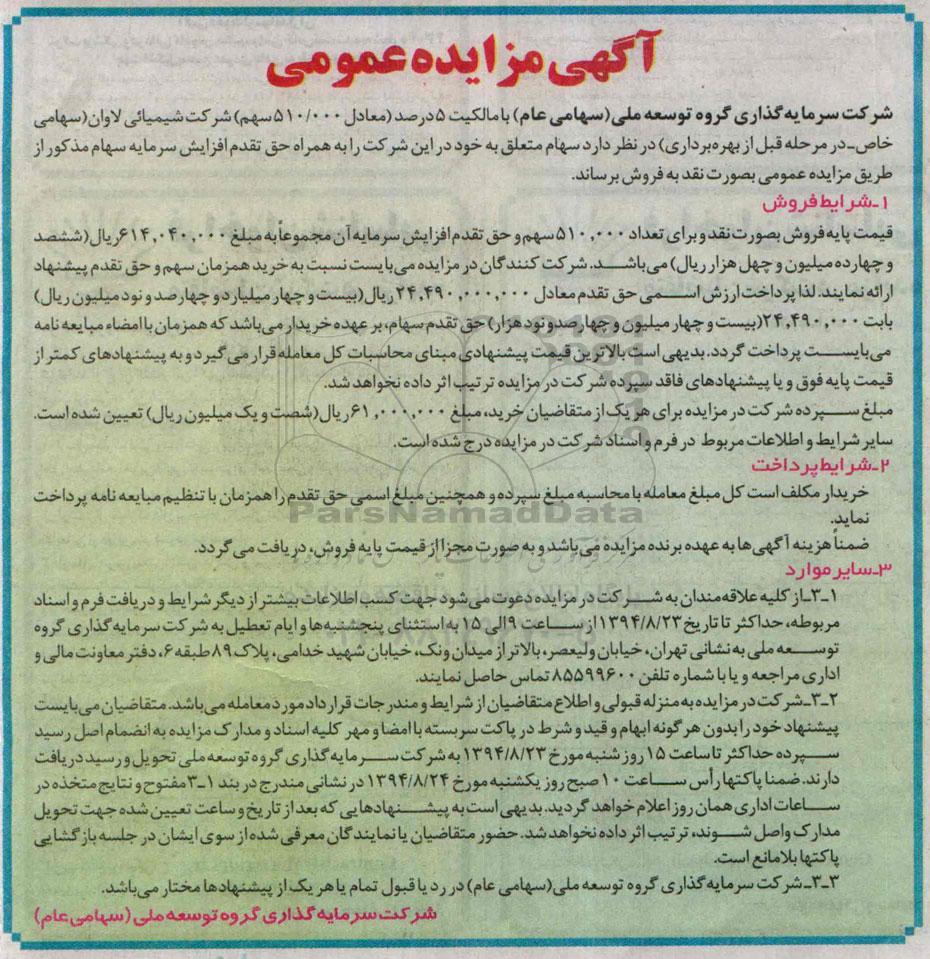 آگهی مزایده عمومی
شرکت سرمایه گذاری گروه توسعه ملی (سهامی عام) با مالکیت ۵ درصد (معادل ۵۱۰/۰۰۰ سهم) شرکت شیمیائی لاوان (سهامی
خاص-در مرحله قبل از بهره‌برداری) در نظر دارد سهام متعلق به خود در این شرکت را به همراه حق تقدم افزایش سرمایه سهام مذکور از
طریق مزایده عمومی بصورت نقد به فروش برساند.
۱-شرایط فروش
قیمت پایه فروش بصورت نقد و برای تعداد ۵۱۰,۰۰۰ سهم و حق تقدم افزایش سرمایه آن مجموعاً به مبلغ ۶۱۴,۰۴۰,۰۰۰ ریال (ششصد
و چهارده میلیون و چهل هزار ریال) می‌باشد. شرکت کنندگان در مزایده می‌بایست نسبت به خرید همزمان سهم و حق تقدم پیشنهاد
ارائه نمایند. لذا پرداخت ارزش اسمی حق تقدم معادل ۲۴,۴۹۰,۰۰۰,۰۰۰ ریال (بیست و چهار میلیارد و چهارصد و نود میلیون ریال)
بابت ۲۴,۴۹۰,۰۰۰ (بیست و چهار میلیون و چهارصد و نود هزار) حق تقدم سهام، بر عهده خریدار می‌باشد که همزمان با امضاء مبایعه نامه
می‌بایست پرداخت گردد. بدیهی است بالاترین قیمت پیشنهادی مبنای محاسبات کل معامله قرار می‌گیرد و به پیشنهادهای کمتر از
قیمت پایه فوق و یا پیشنهادهای فاقد سپرده شرکت در مزایده ترتیب اثر داده نخواهد شد.
مبلغ سپرده شرکت در مزایده برای هر یک از متقاضیان خرید، مبلغ ۶۱,۰۰۰,۰۰۰ ریال (شصت و یک میلیون ریال) تعیین شده است.
سایر شرایط و اطلاعات مربوط در فرم و اسناد شرکت در مزایده درج شده است.
۲-شرایط پرداخت
خریدار مکلف است کل مبلغ معامله با محاسبه مبلغ سپرده و همچنین مبلغ اسمی حق تقدم را همزمان با تنظیم مبایعه نامه پرداخت
نماید.
ParsNamadData
ضمناً هزینه آگهی‌ها به عهده برنده مزایده می‌باشد و به صورت مجزا از قیمت پایه فروش، دریافت می‌گردد.
۳-سایر موارد
۳-۱-از کلیه علاقه‌مندان به شرکت در مزایده دعوت می‌شود جهت کسب اطلاعات بیشتر از دیگر شرایط و دریافت فرم و اسناد
مربوطه، حداکثر تا تاریخ ۱۳۹۴/۸/۲۳ از ساعت ۹ الی ۱۵ به استثنای پنجشنبه‌ها و ایام تعطیل به شرکت سرمایه گذاری گروه
توسعه ملی به نشانی تهران، خیابان ولیعصر، بالاتر از میدان ونک، خیابان شهید خدامی، پلاک ۸۹ طبقه ۶، دفتر معاونت مالی و
اداری مراجعه و یا با شماره تلفن ۸۵۵۹۹۶۰۰ تماس حاصل نمایند.
۳-۲-شرکت در مزایده به منزله قبولی و اطلاع متقاضیان از شرایط و مندرجات قرارداد مورد معامله می‌باشد. متقاضیان می‌بایست
پیشنهاد خود را بدون هر گونه ابهام و قید و شرط در پاکت سربسته با امضا و مهر کلیه اسناد و مدارک مزایده به انضمام اصل رسید
سپرده حداکثر تا ساعت ۱۵ روز شنبه مورخ ۱۳۹۴/۸/۲۳ به شرکت سرمایه گذاری گروه توسعه ملی تحویل و رسید دریافت
دارند. ضمنا پاکتها رأس ساعت ۱۰ صبح روز یکشنبه مورخ ۱۳۹۴/۸/۲۴ در نشانی مندرج در بند ۱-۳ مفتوح و نتایج متخذه در
ساعات اداری همان روز اعلام خواهد گردید. بدیهی است به پیشنهادهایی که بعد از تاریخ و ساعت تعیین شده جهت تحویل
مدارک واصل شوند، ترتیب اثر داده نخواهد شد. حضور متقاضیان یا نمایندگان معرفی شده از سوی ایشان در جلسه بازگشایی
پاکتها بلامانع است.
۳-۳-شرکت سرمایه گذاری گروه توسعه ملی (سهامی عام) در رد یا قبول تمام یا هر یک از پیشنهادها مختار می‌باشد.
شرکت سرمایه گذاری گروه توسعه ملی (سهامی عام)